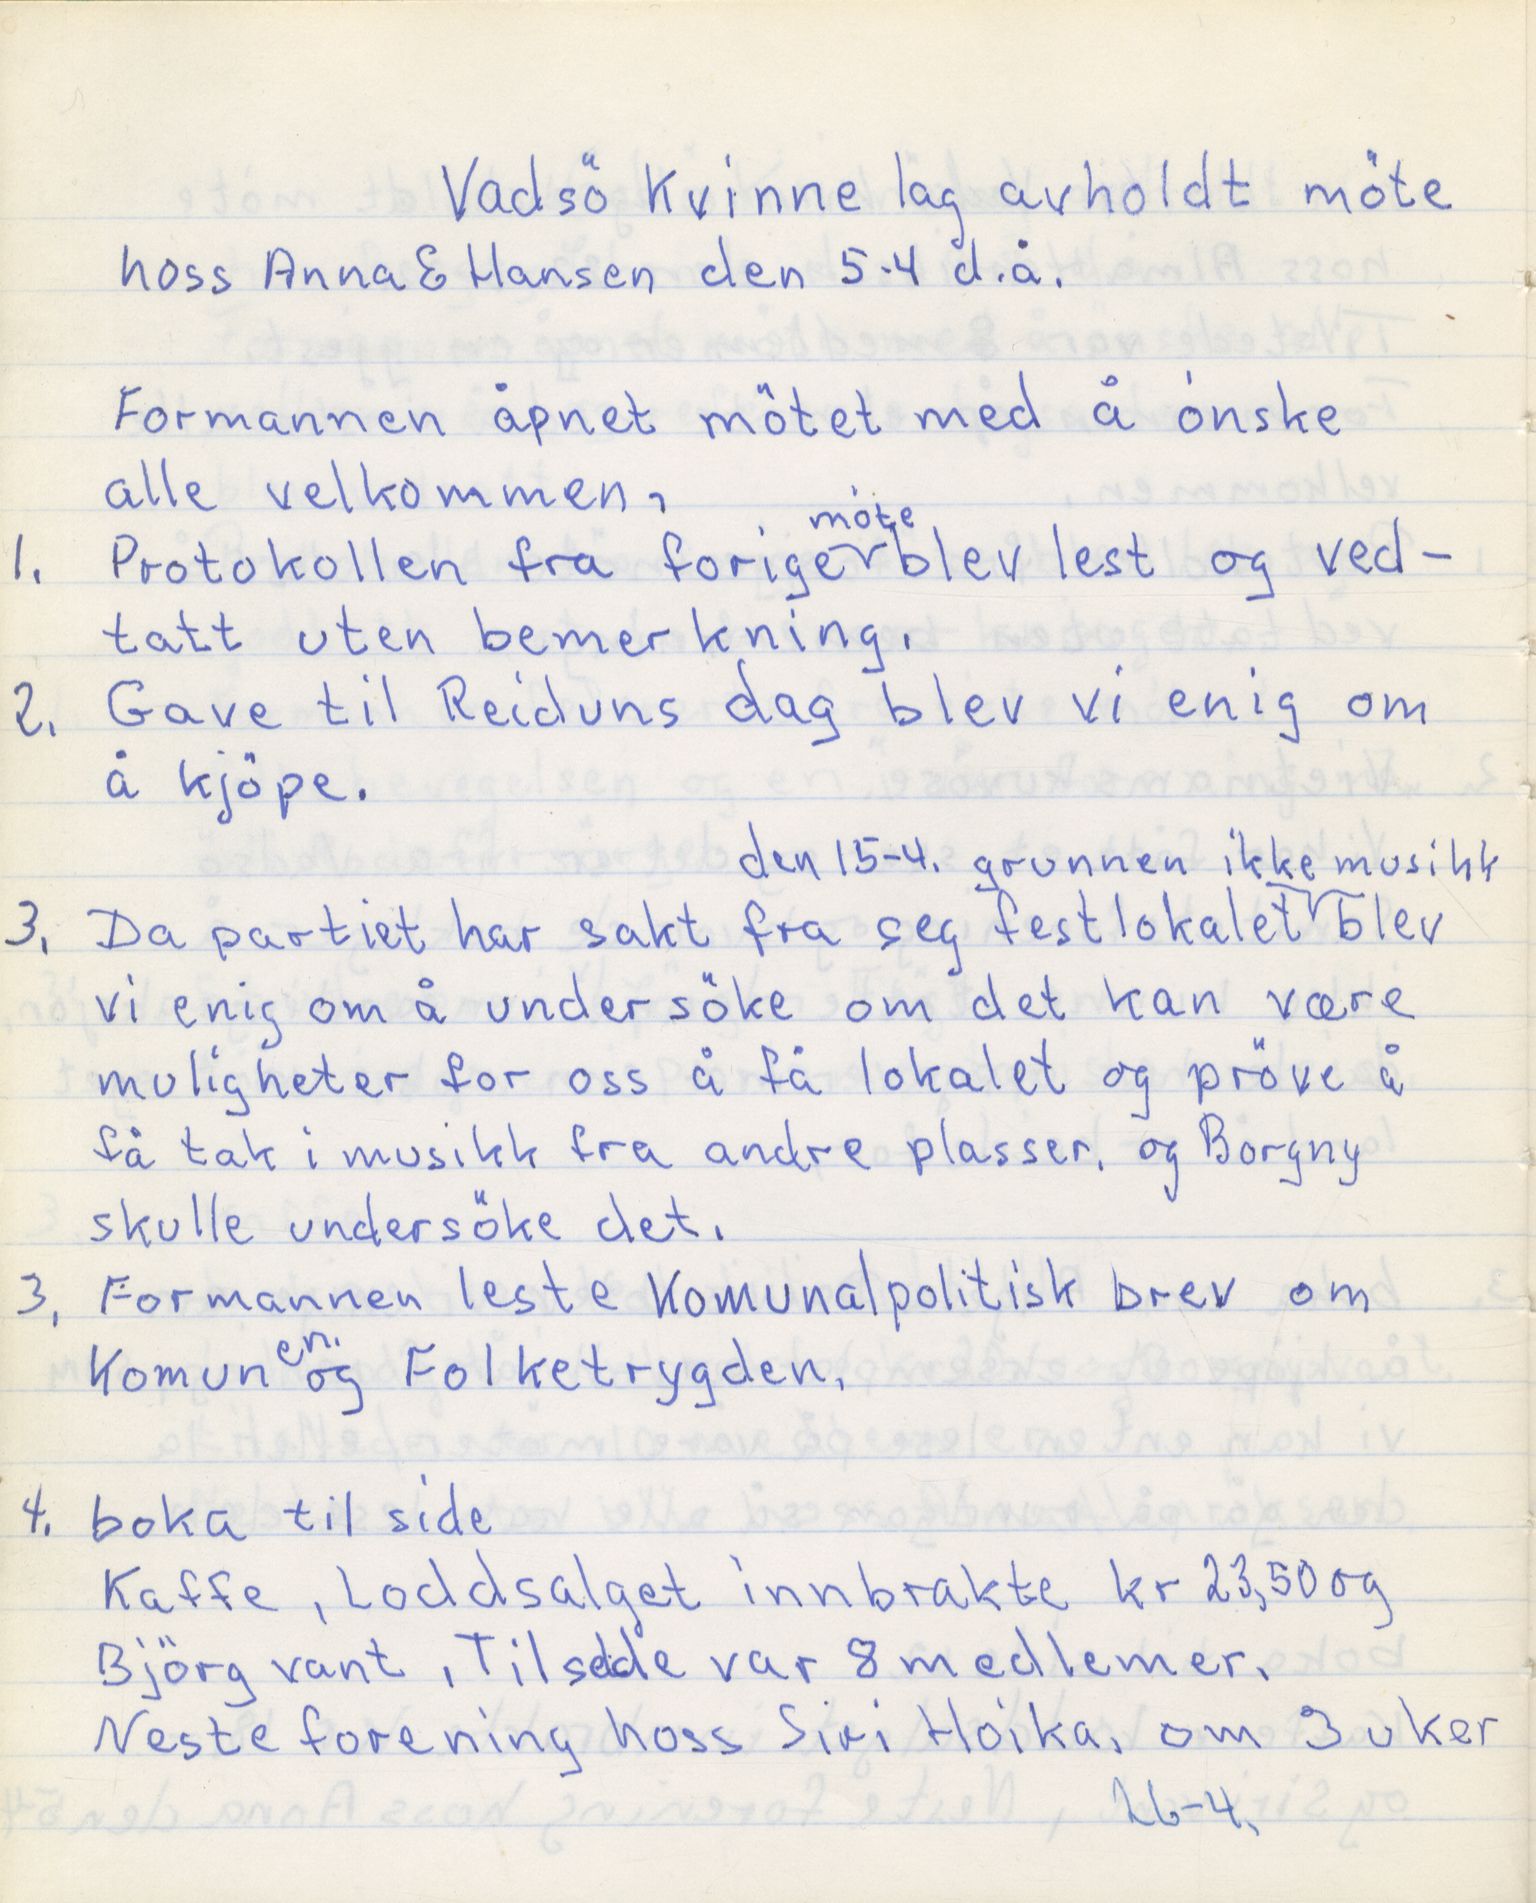 Vadsö Kvinnelag avholdt möte
hoss Anna E Hansen den 5-4 d.å.
Formannen åpnet mötet med å önske
alle velkommen,
möte
1. Protokollen fra forige blev lest og ved-
tatt uten bemerkning.
2. Gave til Reiduns dag blev vi enig om
å kjöpe.
den 15-4. grunnen ikke musikk
3. Da partiet har sakt fra seg festlokalet blev
vi enig om å undersöke om det kan være
muligheter for oss å få lokalet og pröve å
få tak i musikk fra andre plasser. og Borgny
skulle undersöke det.
3. Formannen leste Komunalpolitisk brev om
Komunen. og Folketrygden.
4. boka til side
Kaffe, Loddsalget innbrakte kr 23,50 og
Björg vant, Tilsede var 8 medlemer.
Neste forening hoss Siri Hoika, om 3 uker
26-4.